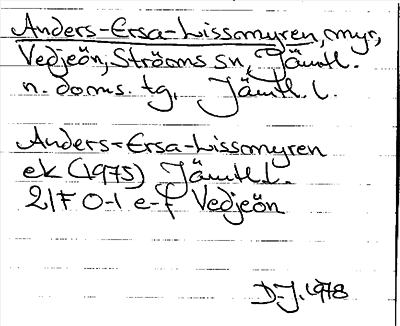 Anders-Ersa-Lissomyren, myr,
Vedjeön, Ströms sn, Jämtl.
n. doms. tg, Jämtl. l.
Anders-Ersa-Lissomyren
ek (1975) Jämtl l.
21F 0-1 e-f Vedjeön
D.J. 1978